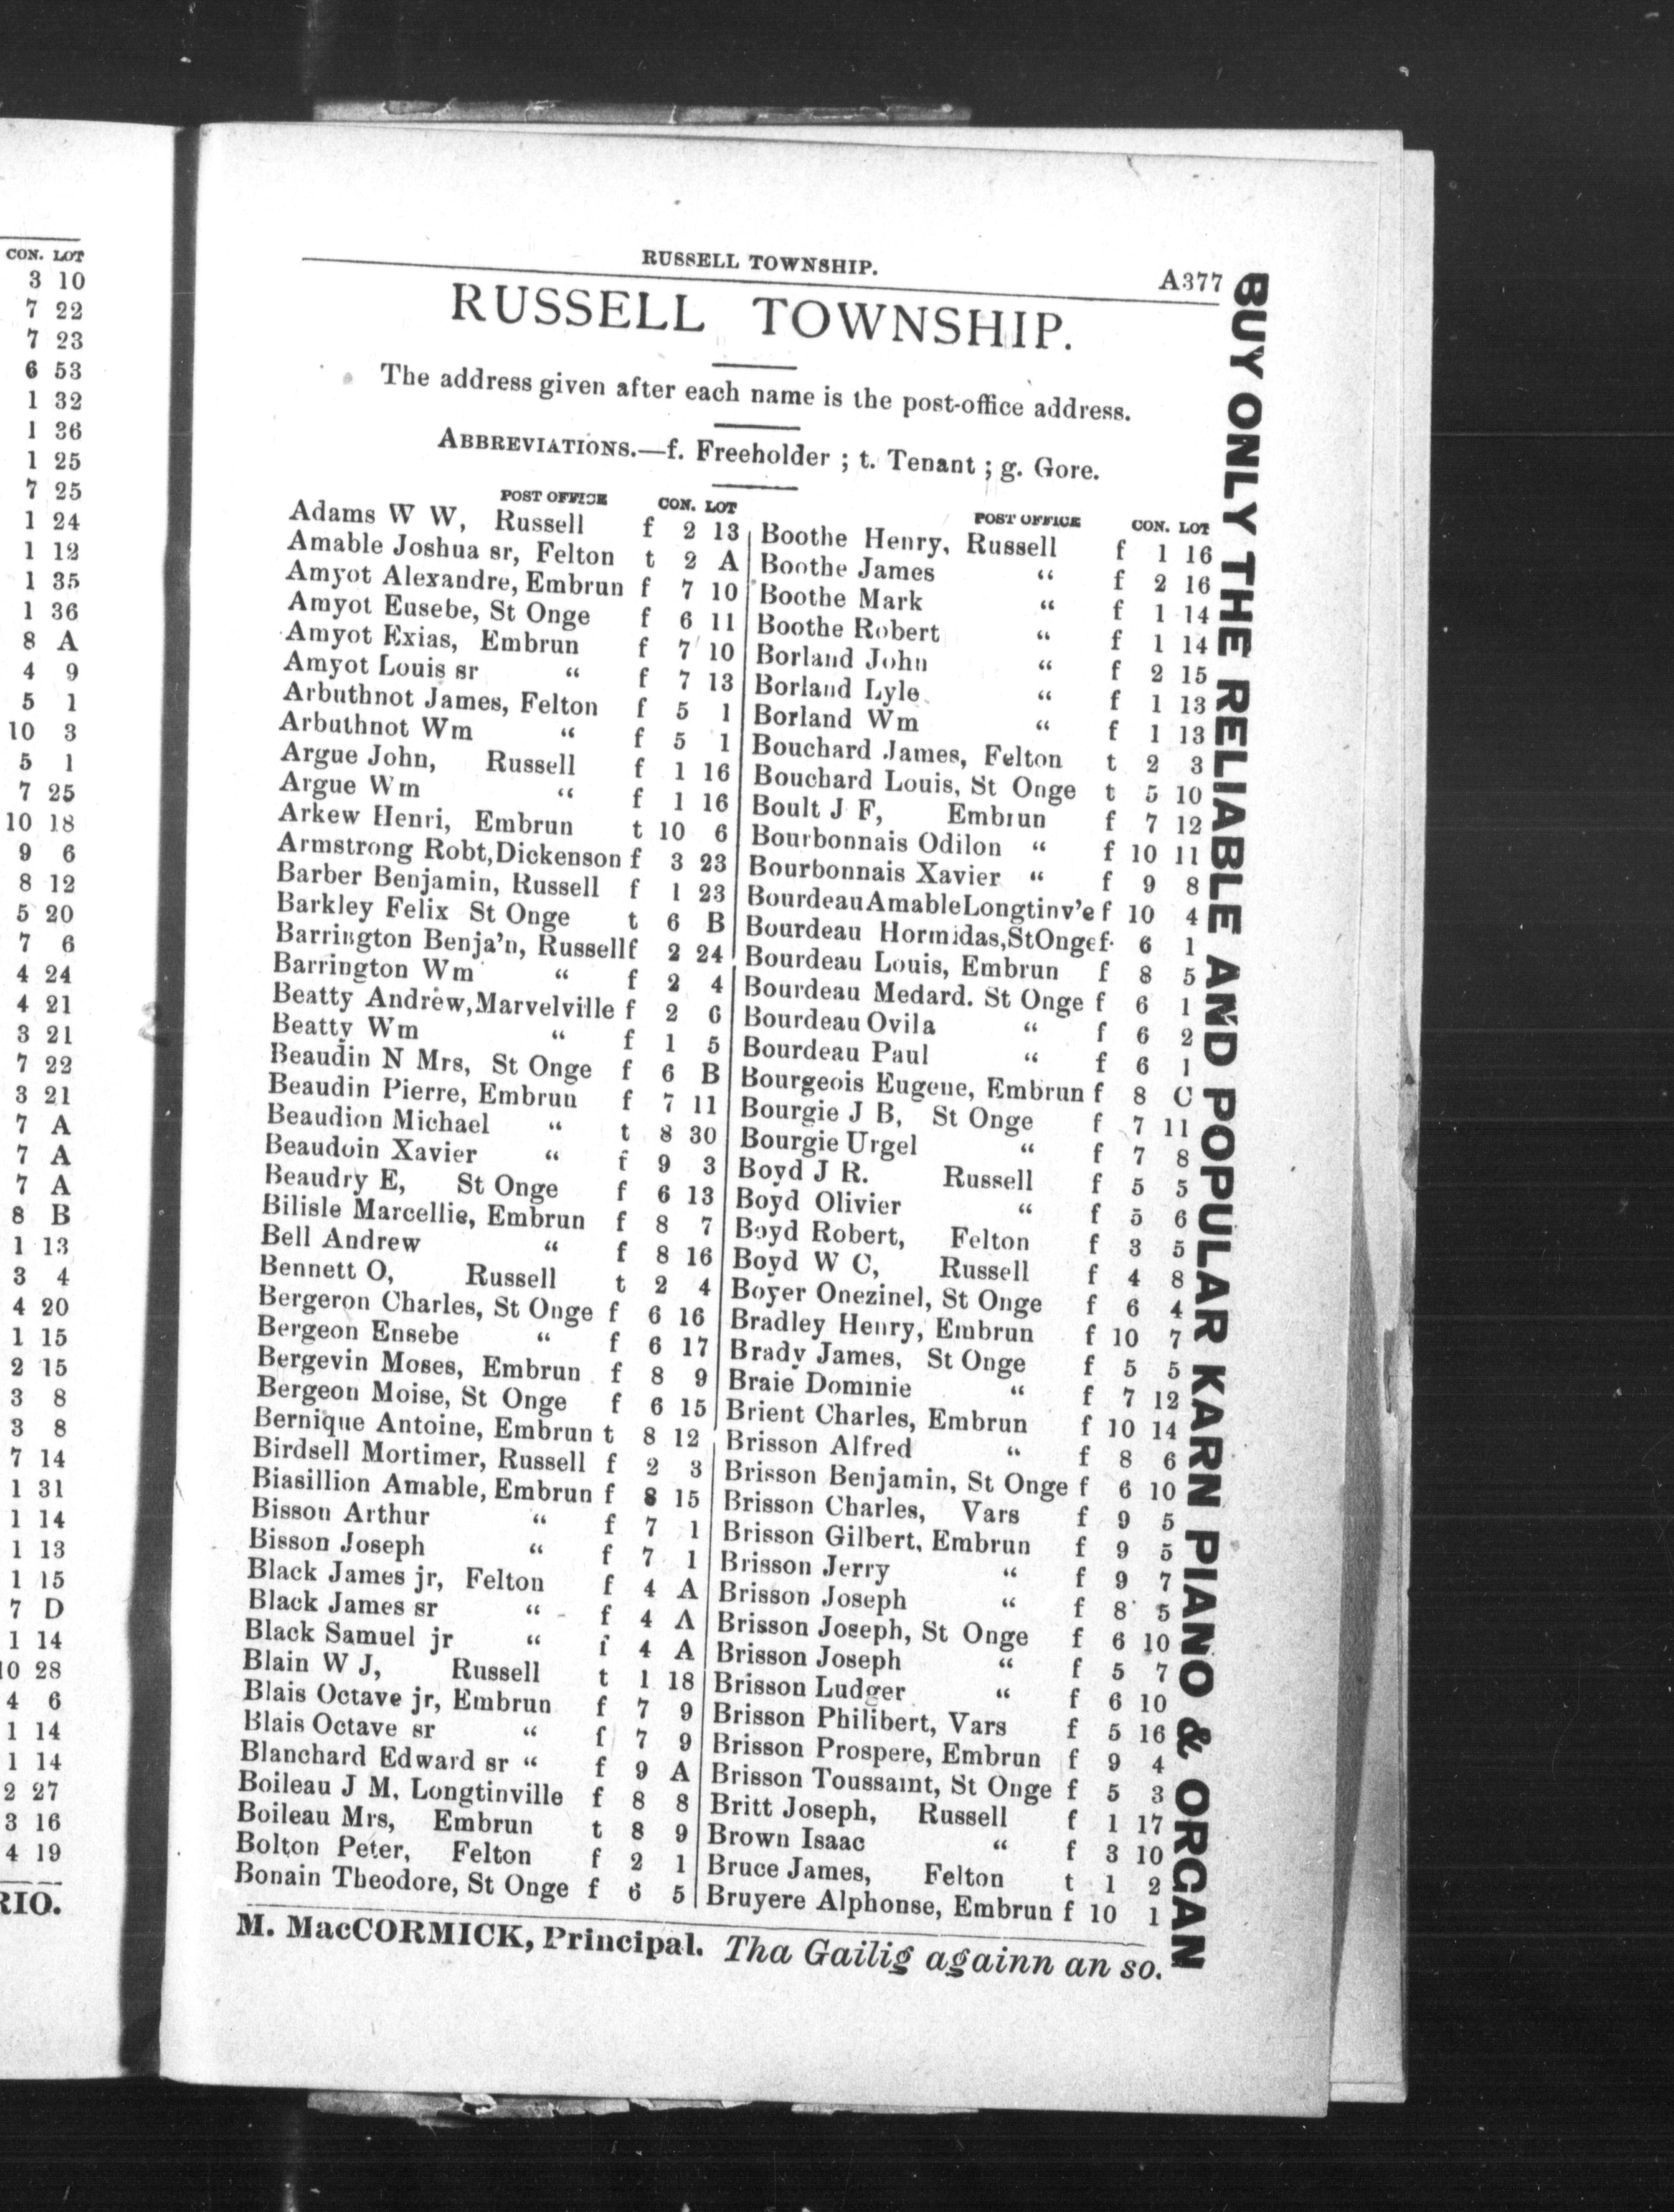 CON. LOT
3 10
7 22
7 23
6 53
1 32
1 36
1 25
7 25
1 24
1 12
1 35
1 36
8 A
4 9
5 1
10 3
5 1
7 25
10 18
9 6
8 12
5 20
7 6
4 24
4 21
3 21
7 22
3 21
7 A
7 A
7 A
8 B
1 13
3 4
4 20
1 15
2 15
3 8
3 8
7 14
1 31
1 14
1 13
1 15
7 D
1 14
10 28
4 6
1 14
1 14
2 27
3 16
4 19
RIO.
RUSSELL TOWNSHIP.
A377
RUSSELL TOWNSHIP.
The address given after each name is the post-office address.
ABBREVIATIONS.—f. Freeholder ; t. Tenant ; g. Gore.
POST OFFICE CON. LOT
Adams W W, Russell f 2 13
Amable Joshua sr, Felton t 2 A
Amyot Alexandre, Embrun f 7 10
Amyot Eusebe, St Onge f 6 11
Amyot Exias, Embrun f 7 10
Amyot Louis sr “ f 7 13
Arbuthnot James, Felton f 5 1
Arbuthnot Wm “ f 5 1
Argue John, Russell f 1 16
Argue Wm “ f 1 16
Arkew Henri, Embrun t 10 6
Armstrong Robt,Dickenson f 3 23
Barber Benjamin, Russell f 1 23
Barkley Felix St Onge t 6 B
Barrington Benja'n, Russell f 2 24
Barrington Wm “ f 2 4
Beatty Andrew,Marvelville f 2 6
Beatty Wm “ f 1 5
Beaudin N Mrs, St Onge f 6 B
Beaudin Pierre, Embrun f 7 11
Beaudion Michael “ t 8 30
Beaudoin Xavier “ f 9 3
Beaudry E, St Onge f 6 13
Bilisle Marcellie, Embrun f 8 7
Bell Andrew “ f 8 16
Bennett O, Russell t 2 4
Bergeron Charles, St Onge f 6 16
Bergeon Ensebe “ f 6 17
Bergevin Moses, Embrun f 8 9
Bergeon Moise, St Onge f 6 15
Bernique Antoine, Embrun t 8 12
Birdsell Mortimer, Russell f 2 3
Biasillion Amable, Embrun f 8 15
Bisson Arthur “ f 7 1
Bisson Joseph “ f 7 1
Black James jr, Felton f 4 A
Black James sr “ f 4 A
Black Samuel jr “ f 4 A
Blain W J, Russell t 1 18
Blais Octave jr, Embrun f 7 9
Blais Octave sr “ f 7 9
Blanchard Edward sr “ f 9 A
Boileau J M, Longtinville f 8 8
Boileau Mrs, Embrun t 8 9
Bolton Peter, Felton f 2 1
Bonain Theodore, St Onge f 6 5
POST OFFICE CON. LOT
Boothe Henry, Russell f 1 16
Boothe James “ f 2 16
Boothe Mark “ f 1 14
Boothe Robert “ f 1 14
Borland John “ f 2 15
Borland Lyle “ f 1 13
Borland Wm “ f 1 13
Bouchard James, Felton t 2 3
Bouchard Louis, St Onge t 5 10
Boult J F, Embrun f 7 12
Bourbonnais Odilon “ f 10 11
Bourbonnais Xavier “ f 9 8
BourdeauAmableLongtinv'e f 10 4
Bourdeau Hormidas,StOnge f 6 1
Bourdeau Louis, Embrun f 8 5
Bourdeau Medard. St Onge f 6 1
Bourdeau Ovila “ f 6 2
Bourdeau Paul “ f 6 1
Bourgeois Eugene, Embrun f 8 C
Bourgie J B, St Onge f 7 11
Bourgie Urgel “ f 7 8
Boyd J R. Russell f 5 5
Boyd Olivier “ f 5 6
Boyd Robert, Felton f 3 5
Boyd W C, Russell f 4 8
Boyer Onezinel, St Onge f 6 4
Bradley Henry, Embrun f 10 7
Brady James, St Onge f 5 5
Braie Dominie “ f 7 12
Brient Charles, Embrun f 10 14
Brisson Alfred “ f 8 6
Brisson Benjamin, St Onge f 6 10
Brisson Charles, Vars f 9 5
Brisson Gilbert, Embrun f 9 5
Brisson Jerry “ f 9 7
Brisson Joseph “ f 8 5
Brisson Joseph, St Onge f 6 10
Brisson Joseph “ f 5 7
Brisson Ludger “ f 6 10
Brisson Philibert, Vars f 5 16
Brisson Prospere, Embrun f 9 4
Brisson Toussaint, St Onge f 5 3
Britt Joseph, Russell f 1 17
Brown Isaac “ f 3 10
Bruce James, Felton t 1 2
Bruyere Alphonse, Embrun f 10 1
M. MacCORMICK, Principal. Tha Gailig againn an so.
BUY ONLY THE RELIABLE AND POPULAR KARN PIANO & ORGAN